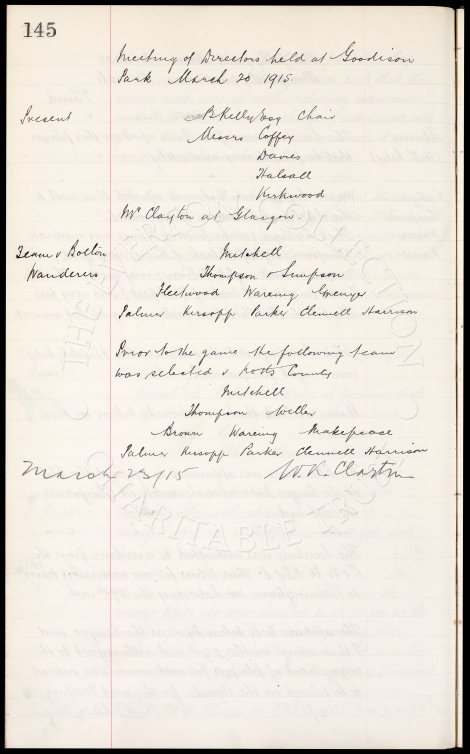 145
Meeting of Directors held at Goodison
Park March 20 1915.
Present
A B Kelly Esq Chair
Messrs Coffey
Davies
Halsall
Kirkwood
Mr Clayton at Glasgow.
Team v Bolton
Wanderers
Mitchell
Thompson & Simpson
Fleetwood Wareing Grenyer
Palmer Kirsopp Parker Clennell Harrison
Prior to the game the following team
was selected v Notts County
Mitchell
Thompson Weller
Brown Wareing Makepeace
Palmer Kirsopp Parker Clennell Harrison
March 23/15
W. R. Clayton
THE EVERTON COLLECTION
CHARITABLE TRUST